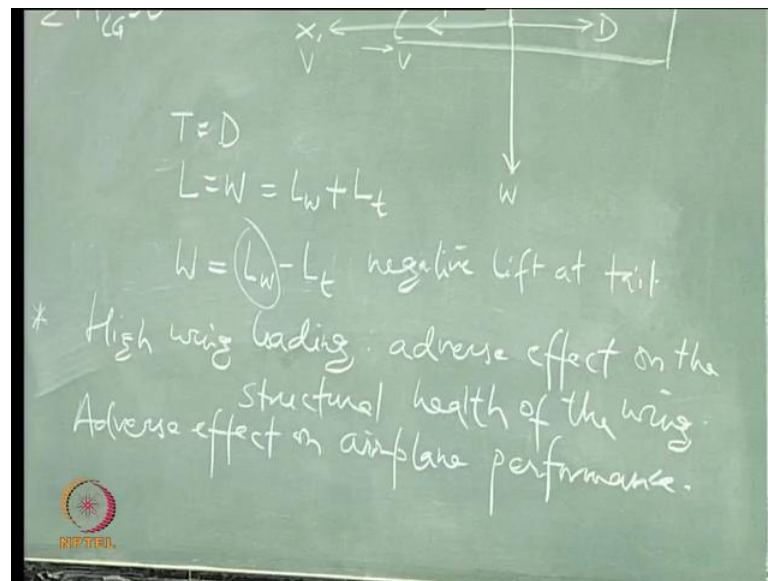 CG
X, D
V V
T = D
W
L = W = Lw + Lt
W = Lw - Lt negative lift at tail.
* High wing loading. adverse effect on the
structural health of the wing.
Adverse effect on airplane performance.
NPTEL